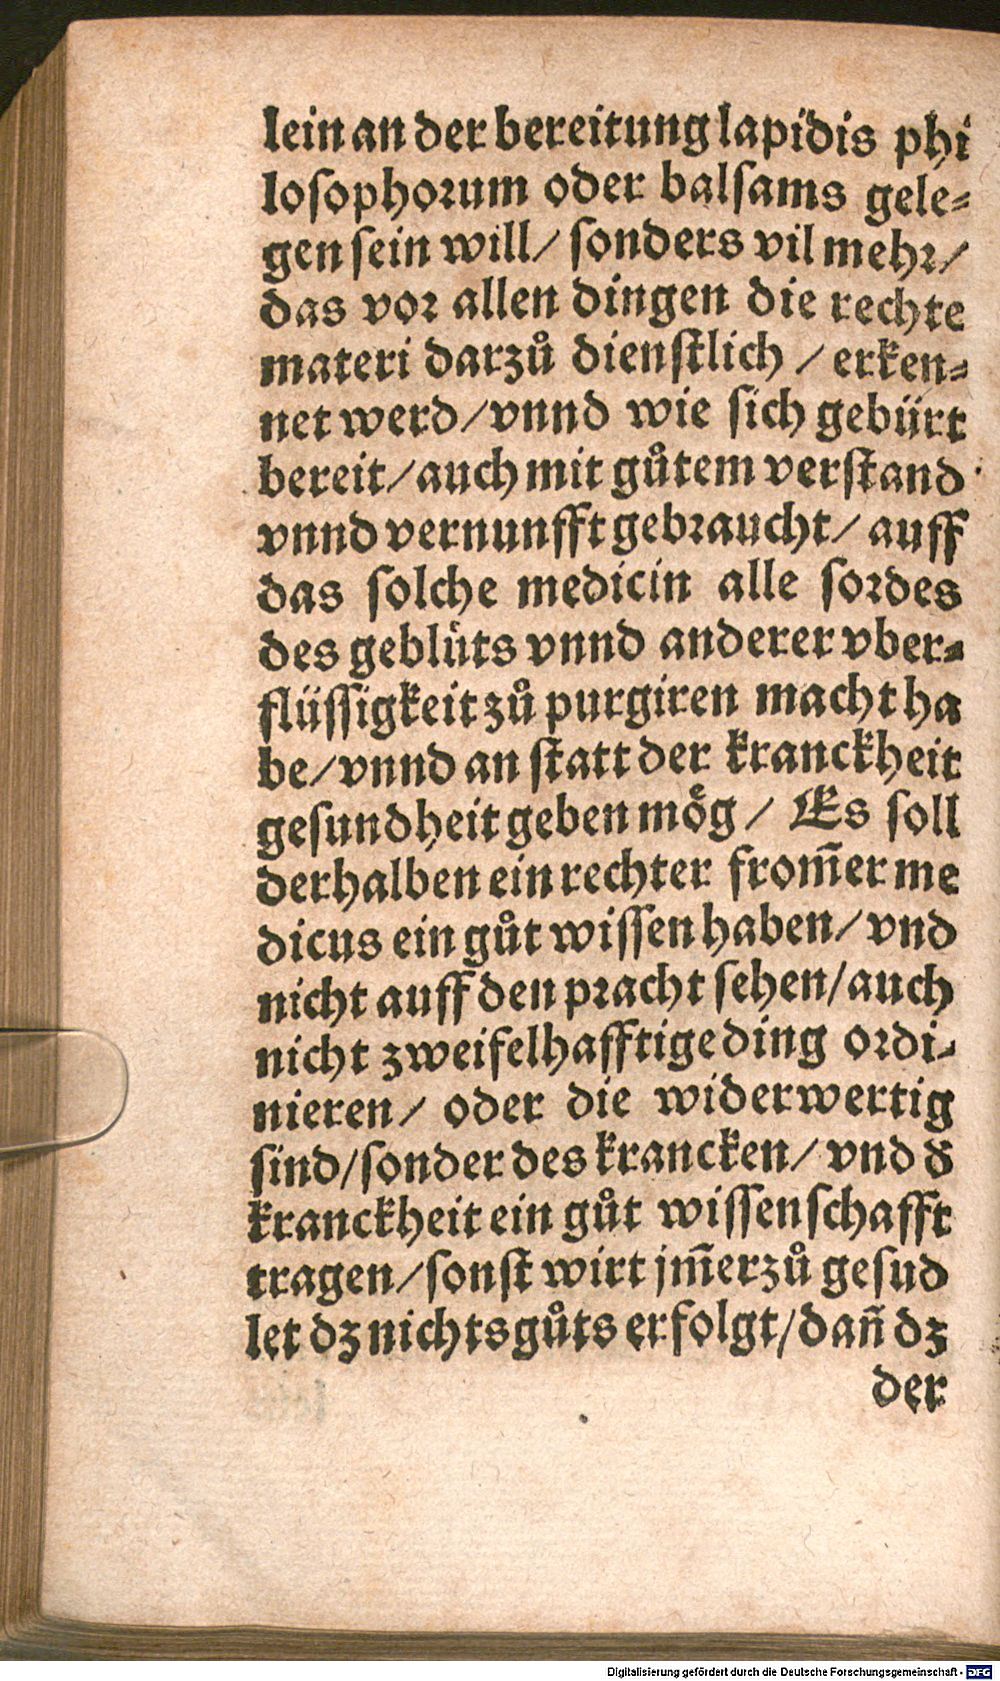 lein an der bereitung lapidis phi
losophorum oder balsams gele⸗
gen sein will/ sonders vil mehr/
das vor allen dingen die rechte
materi darzů dienstlich / erken⸗
net werd/vnnd wie sich gebürt
bereit/auch mit gůtem verstand
vnnd vernunfft gebraucht/ auff
das solche medicin alle sordes
des geblüts vnnd anderer vber⸗
flüssigkeit zů purgiren macht ha
be/vnnd an statt der kranckheit
gesundheit geben mög / Es soll
derhalben ein rechter from̄er me
dicus ein gůt wissen haben/ vnd
nicht auff den pracht sehen/auch
nicht zweifelhafftige ding ordi⸗
nieren/ oder die widerwertig
sind/sonder des krancken/ vnd d̕
kranckheit ein gůt wissenschafft
tragen/sonst wirt jm̄erzů gesud
let dz nichts gůts erfolgt/dan̄ dz
der
Digitalisierung gefördert durch die Deutsche Forschungsgemeinschaft - DFG